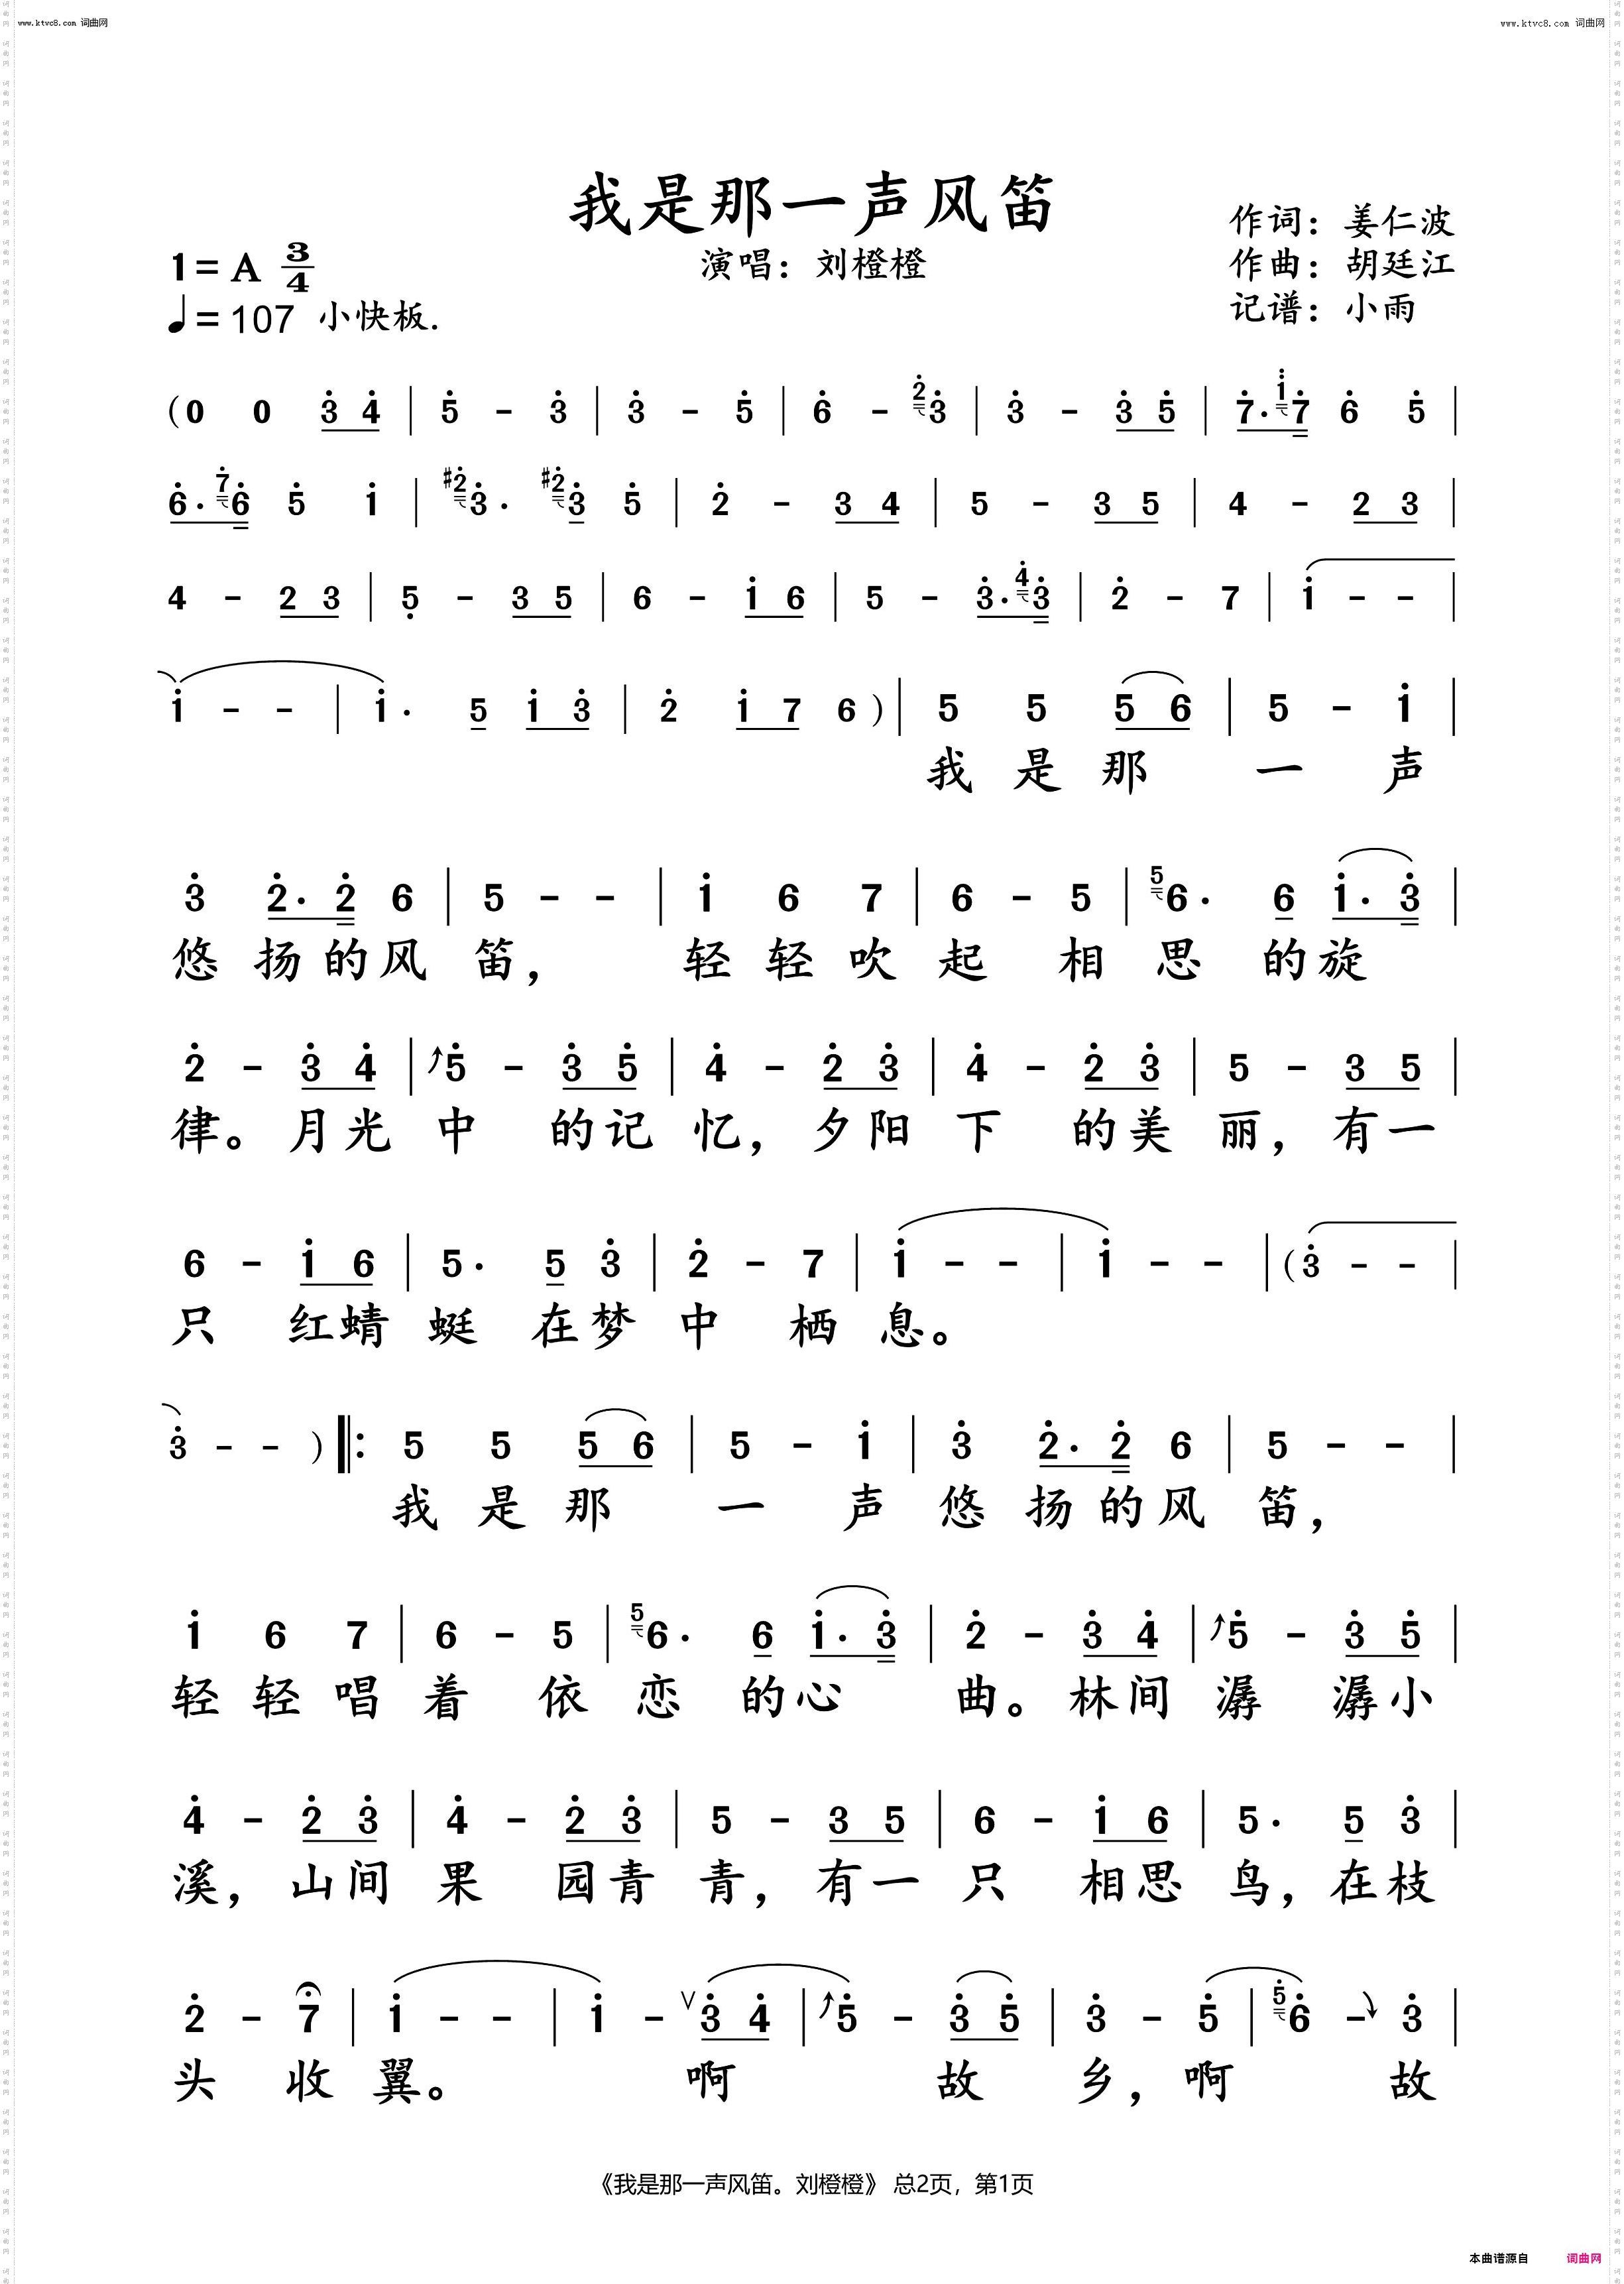 www.ktvc8.com 词曲网 www.ktvc8.com 词曲网
我是那一声风笛
1=A 3/4
演唱：刘橙橙
作词：姜仁波
作曲：胡廷江
♩=107 小快板.
记谱：小雨
(0 0 3̇ 4̇ | 5̇ - 3̇ | 3̇ - 5̇ | 6̇ - 2̇3̇ | 3̇ - 3̇ 5̇ | 7̇·1̇̇7̇ 6̇ 5̇ |
6̇·7̇6̇ 5̇ 1̇ | #2̇3̇· #2̇3̇ 5̇ | 2̇ - 3 4 | 5 - 3 5 | 4 - 2 3 |
4 - 2 3 | 5̣ - 3 5 | 6 - 1̇ 6 | 5 - 3̇·4̇3̇ | 2̇ - 7 | 1̇ - - |
1̇ - - | 1̇· 5 1̇ 3̇ | 2̇ 1̇ 7 6 ) | 5 5 5 6 | 5 - 1̇ |
我 是 那 一 声
3̇ 2̇·2̇ 6 | 5 - - | 1̇ 6 7 | 6 - 5 | 56· 6 1̇·3̇ |
悠 扬 的 风 笛， 轻 轻 吹 起 相 思 的 旋
2̇ - 3̇ 4̇ | 5̇ - 3̇ 5̇ | 4̇ - 2̇ 3̇ | 4̇ - 2̇ 3̇ | 5 - 3 5 |
律。月 光 中 的 记 忆， 夕 阳 下 的 美 丽， 有 一
6 - 1̇ 6 | 5· 5 3̇ | 2̇ - 7 | 1̇ - - | 1̇ - - | (3̇ - - |
只 红 蜻 蜓 在 梦 中 栖 息。
3̇ - - ) ‖: 5 5 5 6 | 5 - 1̇ | 3̇ 2̇·2̇ 6 | 5 - - |
我 是 那 一 声 悠 扬 的 风 笛，
1̇ 6 7 | 6 - 5 | 56· 6 1̇·3̇ | 2̇ - 3̇ 4̇ | 5̇ - 3̇ 5̇ |
轻 轻 唱 着 依 恋 的 心 曲。林 间 潺 潺 小
4̇ - 2̇ 3̇ | 4̇ - 2̇ 3̇ | 5 - 3 5 | 6 - 1̇ 6 | 5· 5 3̇ |
溪， 山 间 果 园 青 青， 有 一 只 相 思 鸟， 在 枝
2̇ - 7 | 1̇ - - | 1̇ - ∨3̇ 4̇ | 5̇ - 3̇ 5̇ | 3̇ - 5̇ | 5̇6̇ - 3̇ |
头 收 翼。 啊 故 乡， 啊 故
《我是那一声风笛。刘橙橙》 总2页，第1页
本曲谱源自 词曲网